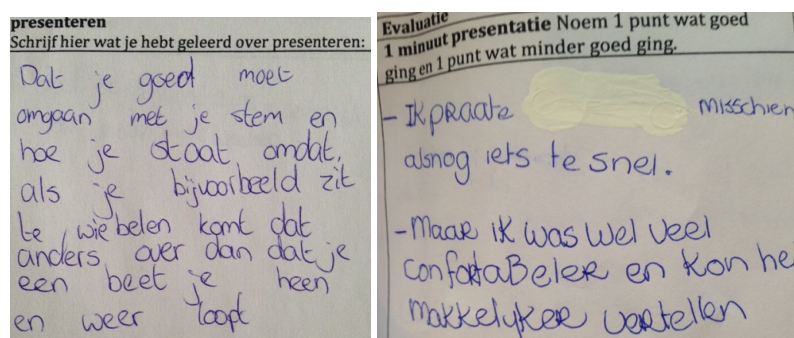 presenteren
Schrijf hier wat je hebt geleerd over presenteren:
Dat je goed moet
omgaan met je stem en
hoe je staat omdat,
als je bijvoorbeeld zit
te wiebelen komt dat
anders over dan dat je
een beetje heen
en weer loopt
Evaluatie
1 minuut presentatie Noem 1 punt wat goed
ging en 1 punt wat minder goed ging.
- Ik praate misschien
alsnog iets te snel.
- Maar ik was wel veel
confortabeler en kon he
makkelyker vertellen